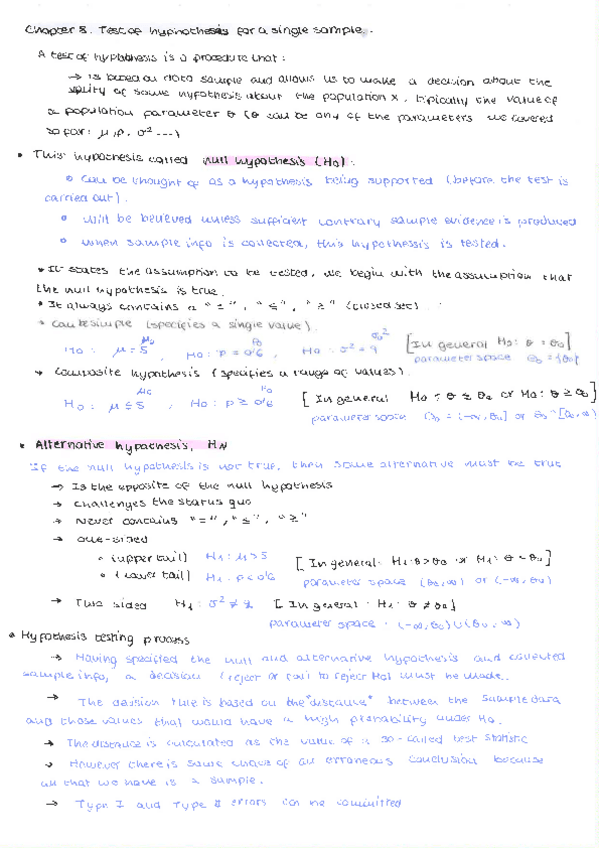 Chapter 8. Test of hypnothesis for a single sample.
A test of hypothesis is a procedure that:
→ Is based on data sample and allows us to make a decision about the
validity of some hypothesis about the population X, tipically the value of
a population parameter θ (θ can be any of the parameters we covered
so far: μ, p, σ² ...)
• This hypothesis called null hypothesis (H0):
• Can be thought of as a hypothesis being supported (before the test is
carried out).
• Will be believed unless sufficient contrary sample evidence is produced
• When sample info is collected, this hypothesis is tested.
• It states the assumption to be tested. We begin with the assumption that
the null hypothesis is true.
• It always contains a "=", "≤", "≥" (closed set)
• Can be simple (specifies a single value).
μ0 p0 σ0²
H0: μ = 5, H0: p = 0'6, H0: σ² = 9 [In general H0: θ = θ0]
parameter space Θ0 = {θ0}
→ Composite hypothesis (specifies a range of values).
μ0 p0
H0: μ ≤ 5, H0: p ≥ 0'6 [In general H0: θ ≤ θ0 or H0: θ ≥ θ0]
parameter space Θ0 = (-∞, θ0] or Θ0 = [θ0, ∞)
• Alternative hypothesis, H1
If the null hypothesis is not true, then some alternative must be true
→ Is the opposite of the null hypothesis
→ Challenges the status quo
→ Never contains "=", "≤", "≥"
→ One-sided
• (upper tail) H1: μ > 5 [In general: H1: θ > θ0 or H1: θ < θ0]
• (lower tail) H1: p < 0'6 parameter space (θ0, ∞) or (-∞, θ0)
→ Two sided H1: σ² ≠ 9 [In general: H1: θ ≠ θ0]
parameter space: (-∞, θ0) ∪ (θ0, ∞)
• Hypothesis testing process
→ Having specified the null and alternative hypothesis and collected
sample info, a decision (reject or fail to reject H0) must be made.
→ The decision rule is based on the "distance" between the sample data
and those values that would have a high probability under H0.
→ The distance is calculated as the value of a so-called test statistic
→ However there is some chance of an erroneous conclusion because
all that we have is a sample.
→ Type I and Type II errors can be committed